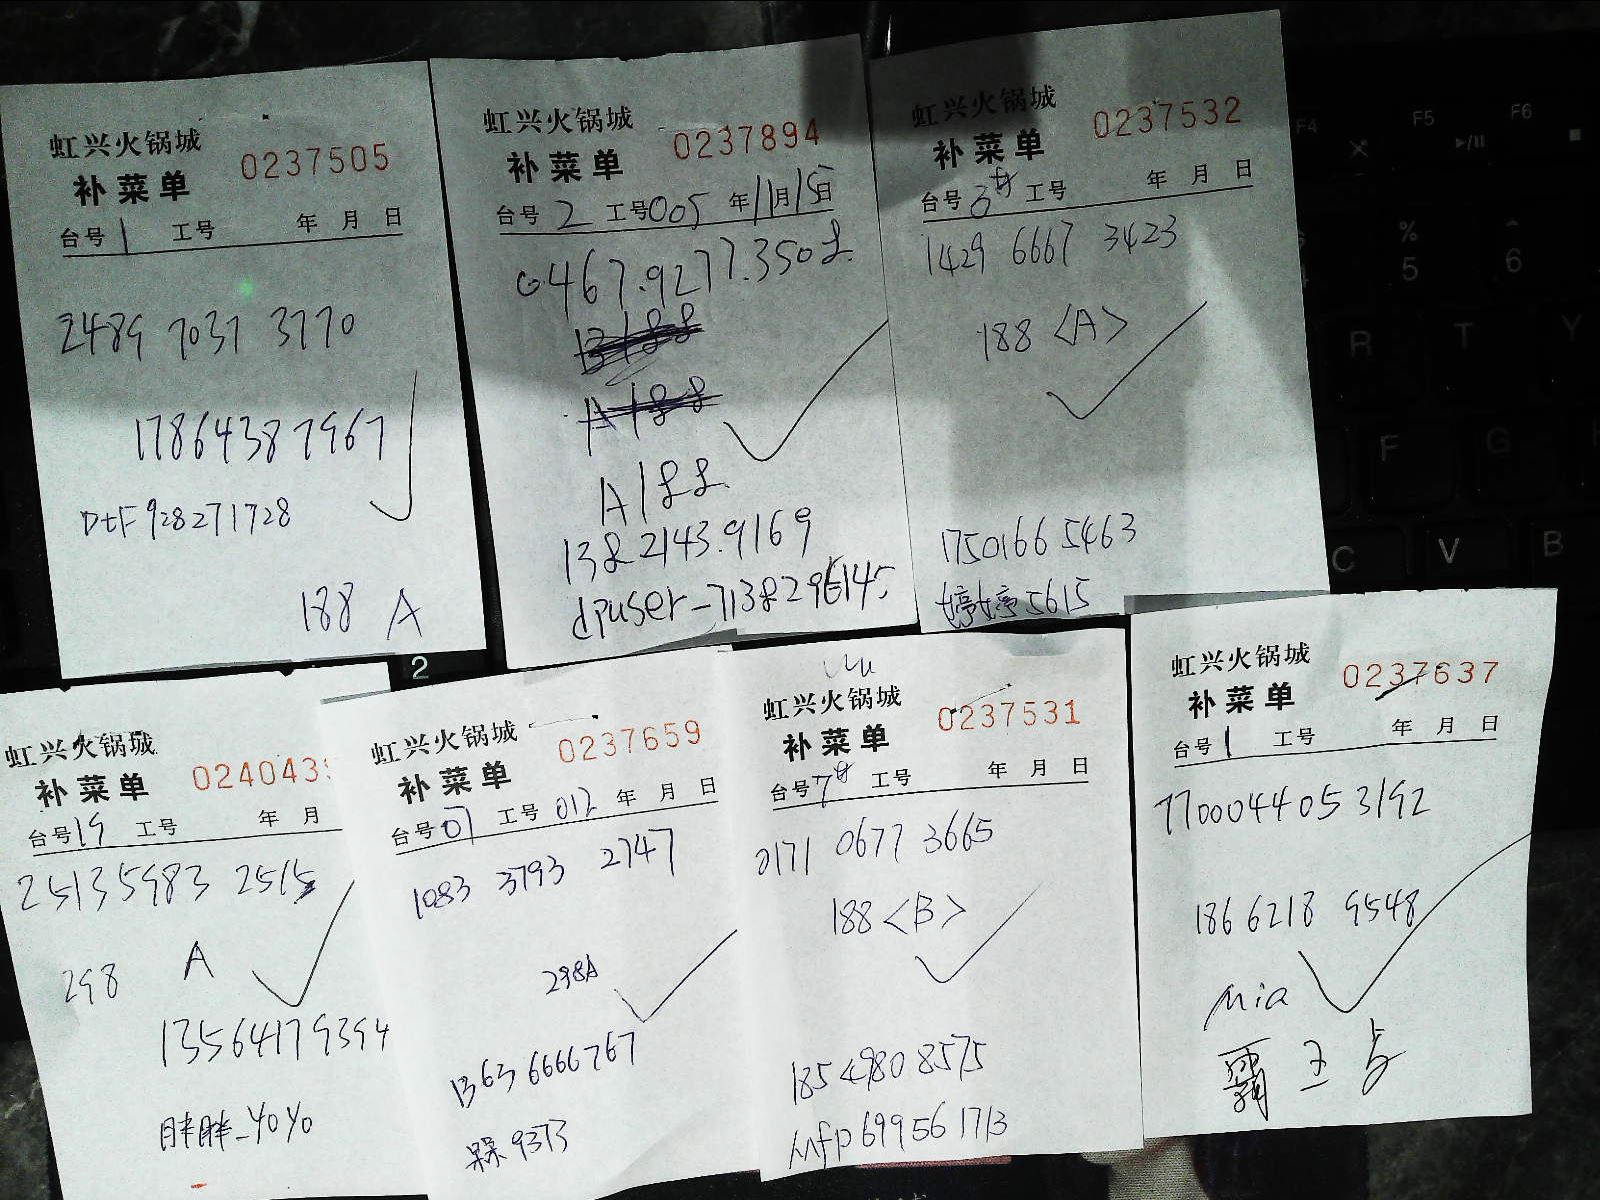 虹兴火锅城
补菜单 0237505
台号 1 工号 年 月 日
2489 7037 3770
17864387967
DtF928271728
188 A
虹兴火锅城
补菜单 0237894
台号 2 工号 005 年 11 月 15 日
0467.9277.3508.
A188.
138 2143.9169
dpuser-7138296145
虹兴火锅城
补菜单 0237532
台号 工号 年 月 日
1429 6667 3423
188 <A>
17501665463
婷婷5615
虹兴火锅城
补菜单 0240439
台号 19 工号 年 月
25135983 2515
298 A
13564179394
胖胖-yoyo
虹兴火锅城
补菜单 0237659
台号 07 工号 012 年 月 日
1083 3793 2747
298A
1363 6666767
槑9373
虹兴火锅城
补菜单 0237531
台号 工号 年 月 日
0171 0677 3665
188 <B>
185 4980 8575
Mfp699561713
虹兴火锅城
补菜单 0237637
台号 1 工号 年 月 日
770004405 3192
186 6218 9548
Mia
霸王
F4
F5
F6
%
5
6
R
T
Y
F
G
C
V
B
2